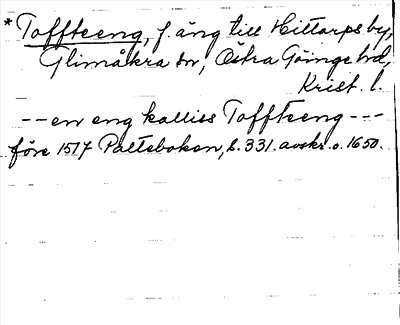 * Toffteeng, f. äng till Hittarps by,
Glimåkra sn, Östra Göinge hd,
Krist. l.
-- en eng kalliss Toffteeng ---
före 1517 Paltebokon, s. 331. avskr. o. 1650.